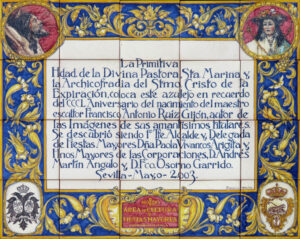 La Primitiva
Hdad. de la Divina Pastora, Sta. Marina y
la Archicofradía del Stmo. Cristo de la
Expiración, coloca este azulejo en recuerdo
del CCCL Aniversario del nacimiento del maestro
escultor Francisco Antonio Ruiz Gijón, autor de
las Imágenes de sus amantísimos titulares.
Se descubrió siendo Fte. Alcalde y Delegada
de Fiestas Mayores Dña. Paola Vivancos Arigita y
Hnos Mayores de las Corporaciones, D. Andrés
Martín Angulo y D. Fco. Osorno Garrido.
Sevilla - Mayo - 2003
ÁREA DE CULTURA
FIESTAS MAYORES